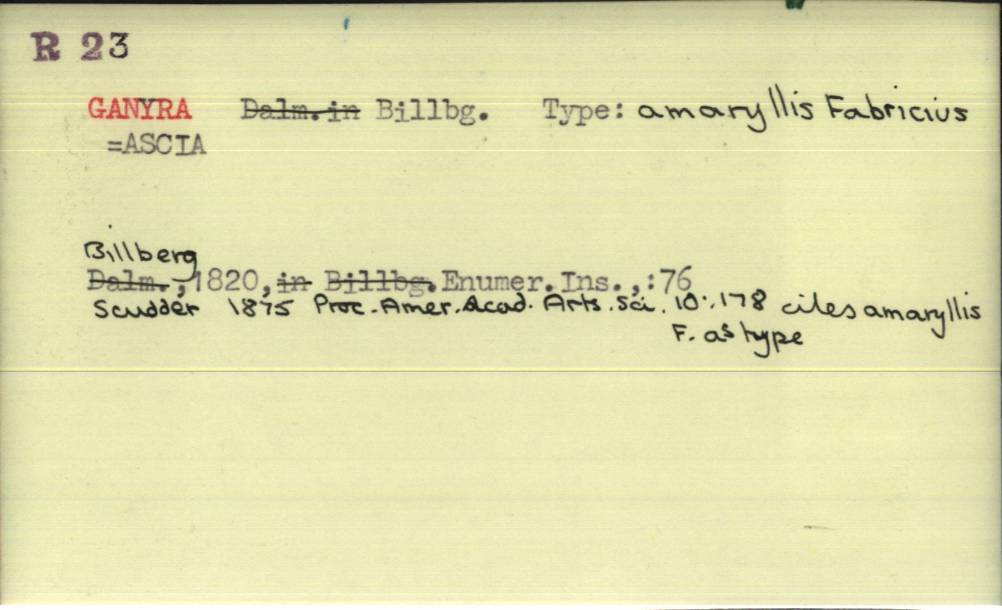 R 23
GANYRA Dalm. in Billbg. Type: amaryllis Fabricius
=ASCIA
Billberg
Dalm., 1820, in Billbg. Enumer. Ins., :76
Scudder 1875 Proc. Amer. Acad. Arts. Sci. 10:, 178 cites amaryllis
F. as type